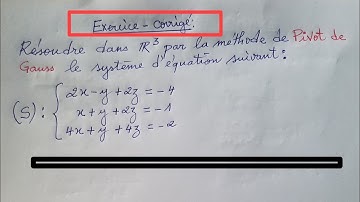 Exercice - Corrigé :
Résoudre dans ℝ³ par la méthode de Pivot de
Gauss le système d'équation suivant :
2x - y + 2z = -4
(S) : { x + y + 2z = -1
4x + y + 4z = -2